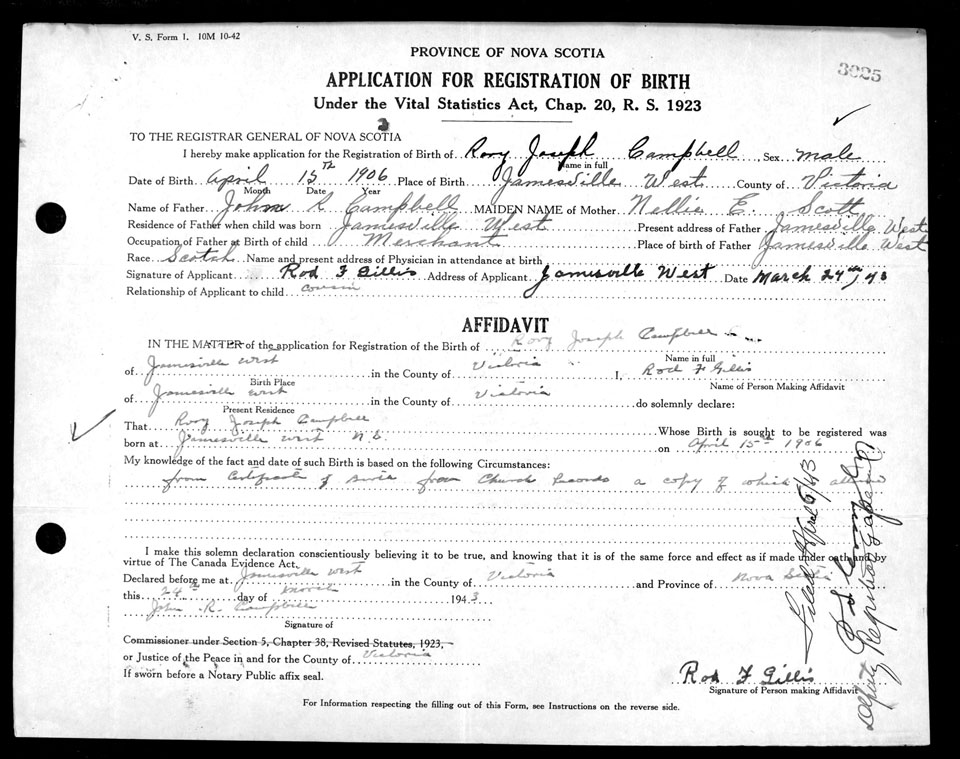 V. S. Form 1. 10M 10-42
3025
PROVINCE OF NOVA SCOTIA
APPLICATION FOR REGISTRATION OF BIRTH
Under the Vital Statistics Act, Chap. 20, R. S. 1923
TO THE REGISTRAR GENERAL OF NOVA SCOTIA
I hereby make application for the Registration of Birth of Rory Joseph Campbell Sex male
Name in full
Date of Birth April 15th 1906 Place of Birth Jamesville West County of Victoria
Month Date Year
Name of Father John R Campbell MAIDEN NAME of Mother Nellie E. Scott
Residence of Father when child was born Jamesville West Present address of Father Jamesville West
Occupation of Father at Birth of child Merchant Place of birth of Father Jamesville West
Race Scotch Name and present address of Physician in attendance at birth
Signature of Applicant Rod F Gillis Address of Applicant Jamesville West Date March 24th/43
Relationship of Applicant to child cousin
AFFIDAVIT
IN THE MATTER of the application for Registration of the Birth of Rory Joseph Campbell
Name in full
of Jamesville West in the County of Victoria I, Rod F Gillis
Birth Place Name of Person Making Affidavit
of Jamesville West in the County of Victoria do solemnly declare:
Present Residence
That Rory Joseph Campbell Whose Birth is sought to be registered was
born at Jamesville West N.S. on April 15th 1906
My knowledge of the fact and date of such Birth is based on the following Circumstances:
from Certificate of Birth from Church Records a copy of which is attached
I make this solemn declaration conscientiously believing it to be true, and knowing that it is of the same force and effect as if made under oath and by
virtue of The Canada Evidence Act.
Declared before me at Jamesville West in the County of Victoria and Province of Nova Scotia
this 24th day of March 1943
John R. Campbell
Signature of
Commissioner under Section 5, Chapter 38, Revised Statutes, 1923,
or Justice of the Peace in and for the County of Victoria
If sworn before a Notary Public affix seal.
Rod F Gillis
Signature of Person making Affidavit
For Information respecting the filling out of this Form, see Instructions on the reverse side.
Filed April 6/43
Deputy Registrar General